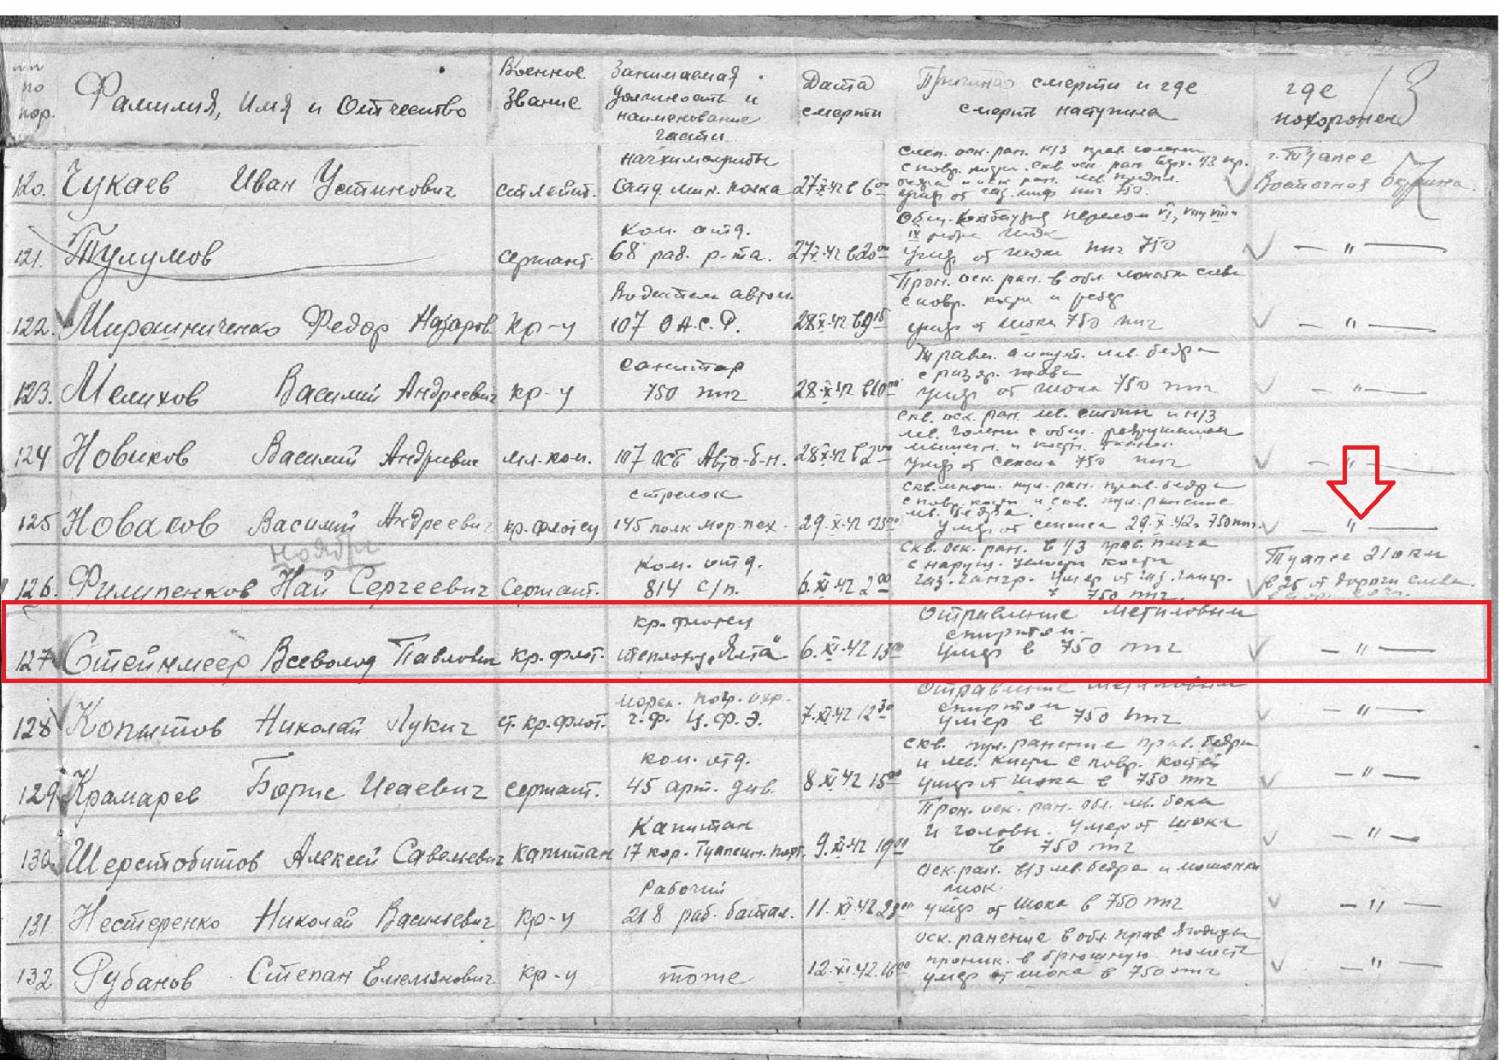 по
пор.
Фамилия, Имя и Отчество
Военное
Звание
Занимаемая
должность и
наименование
части
Дата
смерти
Причина смерти и где
смерть наступила
где
похоронен
13
120. Чукаев Иван Устинович
начхимслужбы
27 XI 42 в 6 00
умер от ппг 750
г. Туапсе
Восточная окраина
121. Тулумов
сержант.
ком. отд.
68 раб. р-та.
27 X-42 в 20 00
умер от шока ппг 750
— " —
122. Мирошниченко Федор Назаров
кр-ц
Водитель автом.
107 О.А.С.Р.
28 X-42 в 9 15
Прон. оск. ран. в обл. лопатки слева
с повр. кости и ребер
умер от шока 750 ппг
— " —
123. Мелихов Василий Андреевич
кр-ц
санитар
750 ппг
28 X-42
Травм. ампут. лев. бедра
умер от шока 750 ппг
— " —
124 Новиков Василий Андреевич
мл-ком.
107 Авто-б-н.
28 X-42
умер от сепсиса 750 ппг
— " —
125 Новасов Василий Андреевич
кр. флотец
стрелок
145 полк мор. пех.
29. X-42
умер от сепсиса 29.X.42. 750 ппг.
— " —
Ноябрь
126. Филипенков Най Сергеевич
Сержант.
Ком. отд.
814 с/п.
6. XI-42 2 00
скв. оск. ран. в 1/3 прав. плеча
с наруш. целости кости
газ. гангр. умер от газ. гангр.
750 ппг.
Туапсе 21 окм
в 25 от дороги слева.
127 Стейнмеер Всеволод Павлович
кр. флот.
кр. флотец
теплоход „Ялта"
6. XI-42 13 00
Отравление метиловым
спиртом.
умер в 750 ппг
— " —
128 Копытов Николай Лукич
ст. кр. флот.
морск. погр. охр.
Ч.Ф. Ц.Ф.Э.
7. XI-42 12 30
Отравление метиловым
спиртом
умер в 750 ппг
— " —
129 Крамарев Борис Исаевич
сержант.
ком. отд.
45 арт. див.
8 XI 42 15 00
скв. пул. ранение прав. бедра
и лев. кисти с повр. костей
умер от шока в 750 ппг
— " —
130 Шерстобитов Алексей Савельевич
капитан
Капитан
17 кор. Туапсин. порт.
9. XI-42 19 00
Прон. оск. ран. обл. лев. бока
и головы. умер от шока
в 750 ппг
— " —
131 Нестеренко Николай Васильевич
кр-ц
Рабочий
218 раб. батал.
11. XI-42
оск. ран. в/3 лев. бедра и мошонки
шок.
умер от шока в 750 ппг
— " —
132 Рубанов Степан Емельянович
кр-ц
тоже
12. XI.42. 16 00
оск. ранение в обл. прав. ягодицы
проник. в брюшную полость
умер от шока в 750 ппг
— " —